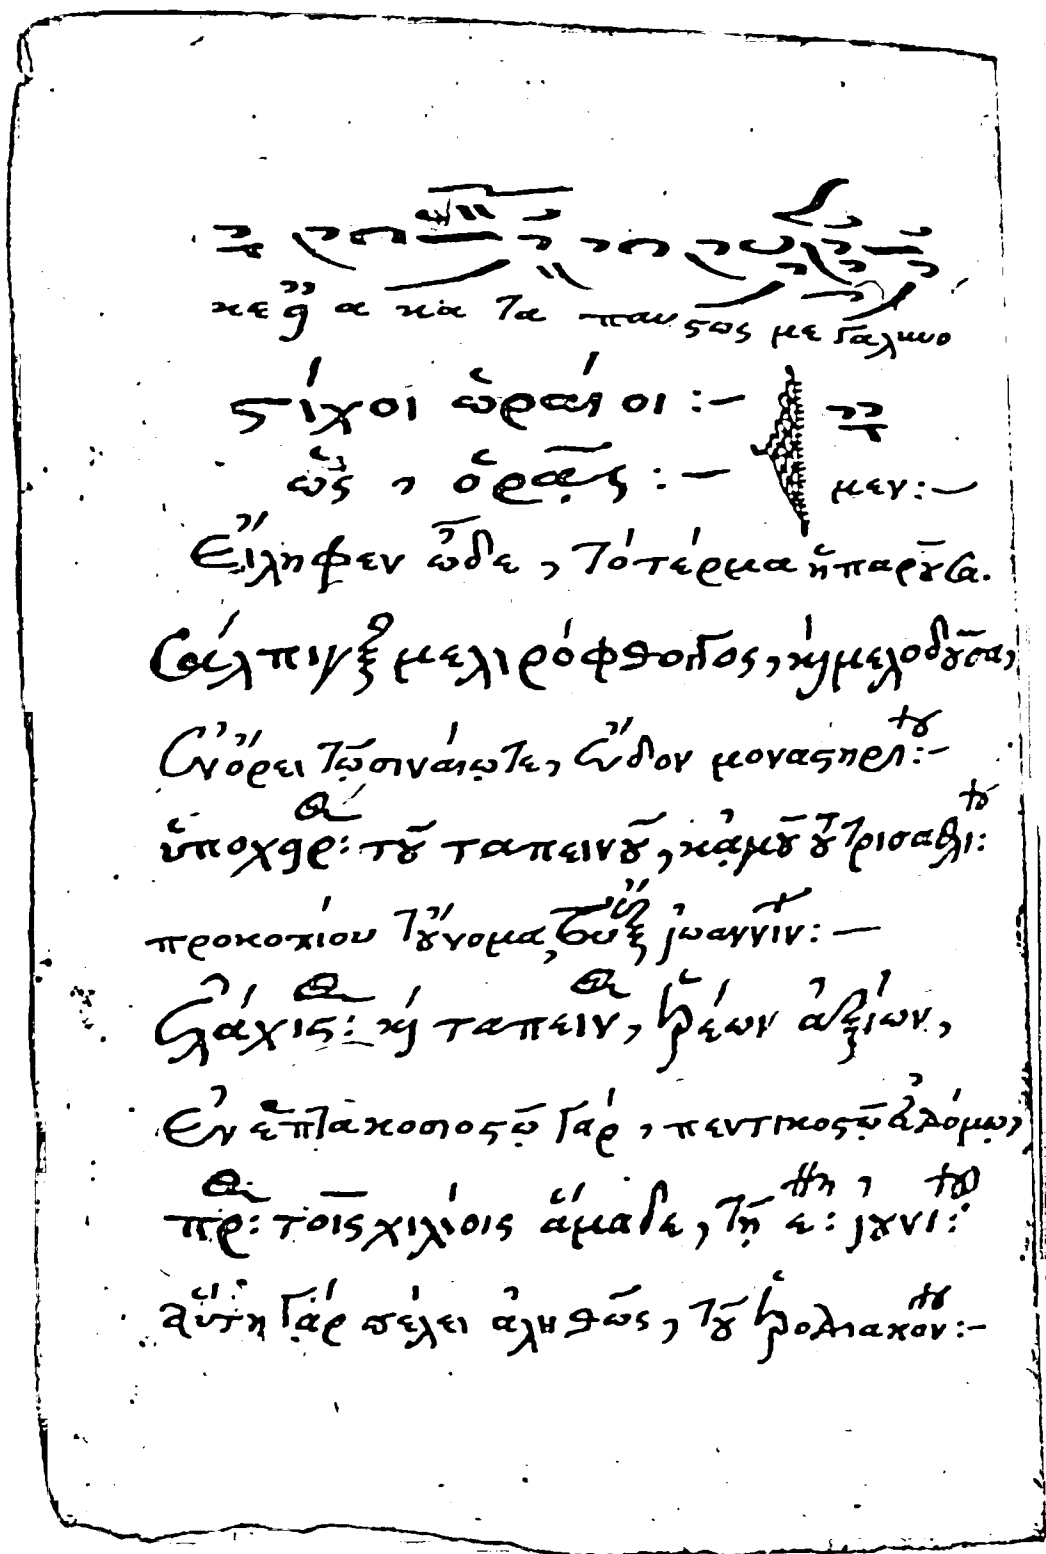 κε φ α κα τα παντως μεγαλυνο
στίχοι ὡραῖοι :–
ὡς , ὁρᾷς : – μεν :–
Εἴληφεν ὧδε , τὸ τέρμα ἡ παροῦσα.
Σάλπιγξ μελιρόφθογγος, κὴ μελοδοῦσα,
Ἐν ὄρει τῷ σιναίῳ τε, ἔνδον μοναστηρί :–
ὑπὸ χειρ : τοῦ ταπεινοῦ , κἀμοῦ τοῦ τρισαθλί :
προκοπίου τοὔνομα, ἐξ ἰωαννίν : –
Ἐλάχιστ : κὴ ταπειν , ἱερέων ἀξιών ,
Ἐν ἑπτακοσιοστῷ γὰρ , πεντικοστῷ
πρ : τοῖς χιλίοις ἅμα δε , τῇ ε : ἰουνί :
αὕτη γὰρ πέλει ἀληθῶς , τοῦ :–